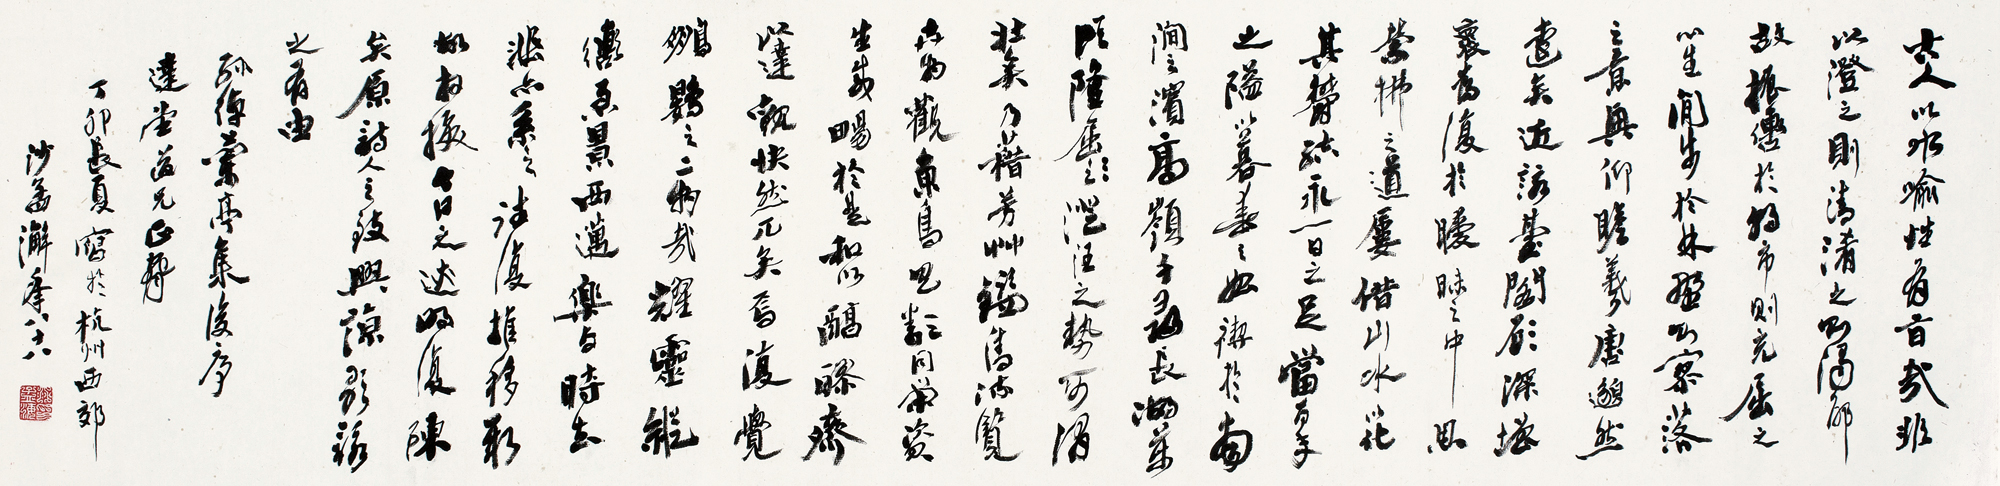 古人以水喻性有旨哉非
以澄之則清淆之則濁邪
故振轡於朝市則充屈之
心生閒步於林野則寥落
之意興仰瞻羲唐邈然
遠矣近詠臺閣顧深增
懷為復於曖昧之中思
縈拂之道屢借山水以化
其鬱結永一日之足當百年
之溢以暮春之始禊於南
澗之濱高嶺千尋長湖萬
頃隆屈澄汪之勢可謂
壯矣乃藉芳艸鑑清流覽
卉物觀魚鳥具類同榮資
生咸暢於是和以醇醪齊
以達觀快然兀矣焉復覺
鵬鷃之二物哉耀靈縱
轡急景西邁樂與時去
悲亦系之往復推移新
故相換今日之迹明復陳
矣原詩人之致興諒歌詠
之有由
孫綽蘭亭集後序
達堂道兄正
丁卯長夏寫於杭州西郊
沙孟海年八十八